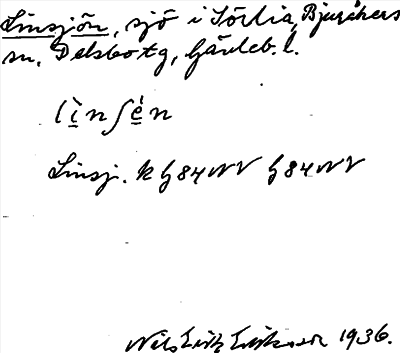 Linsjön, sjö i Sörlia, Bjuråkers
sn, Delsbo tg, Gävleb. l.
lìnʃén
Linsj. k G84NV G84NV
Nils Erik Eriksson 1936.